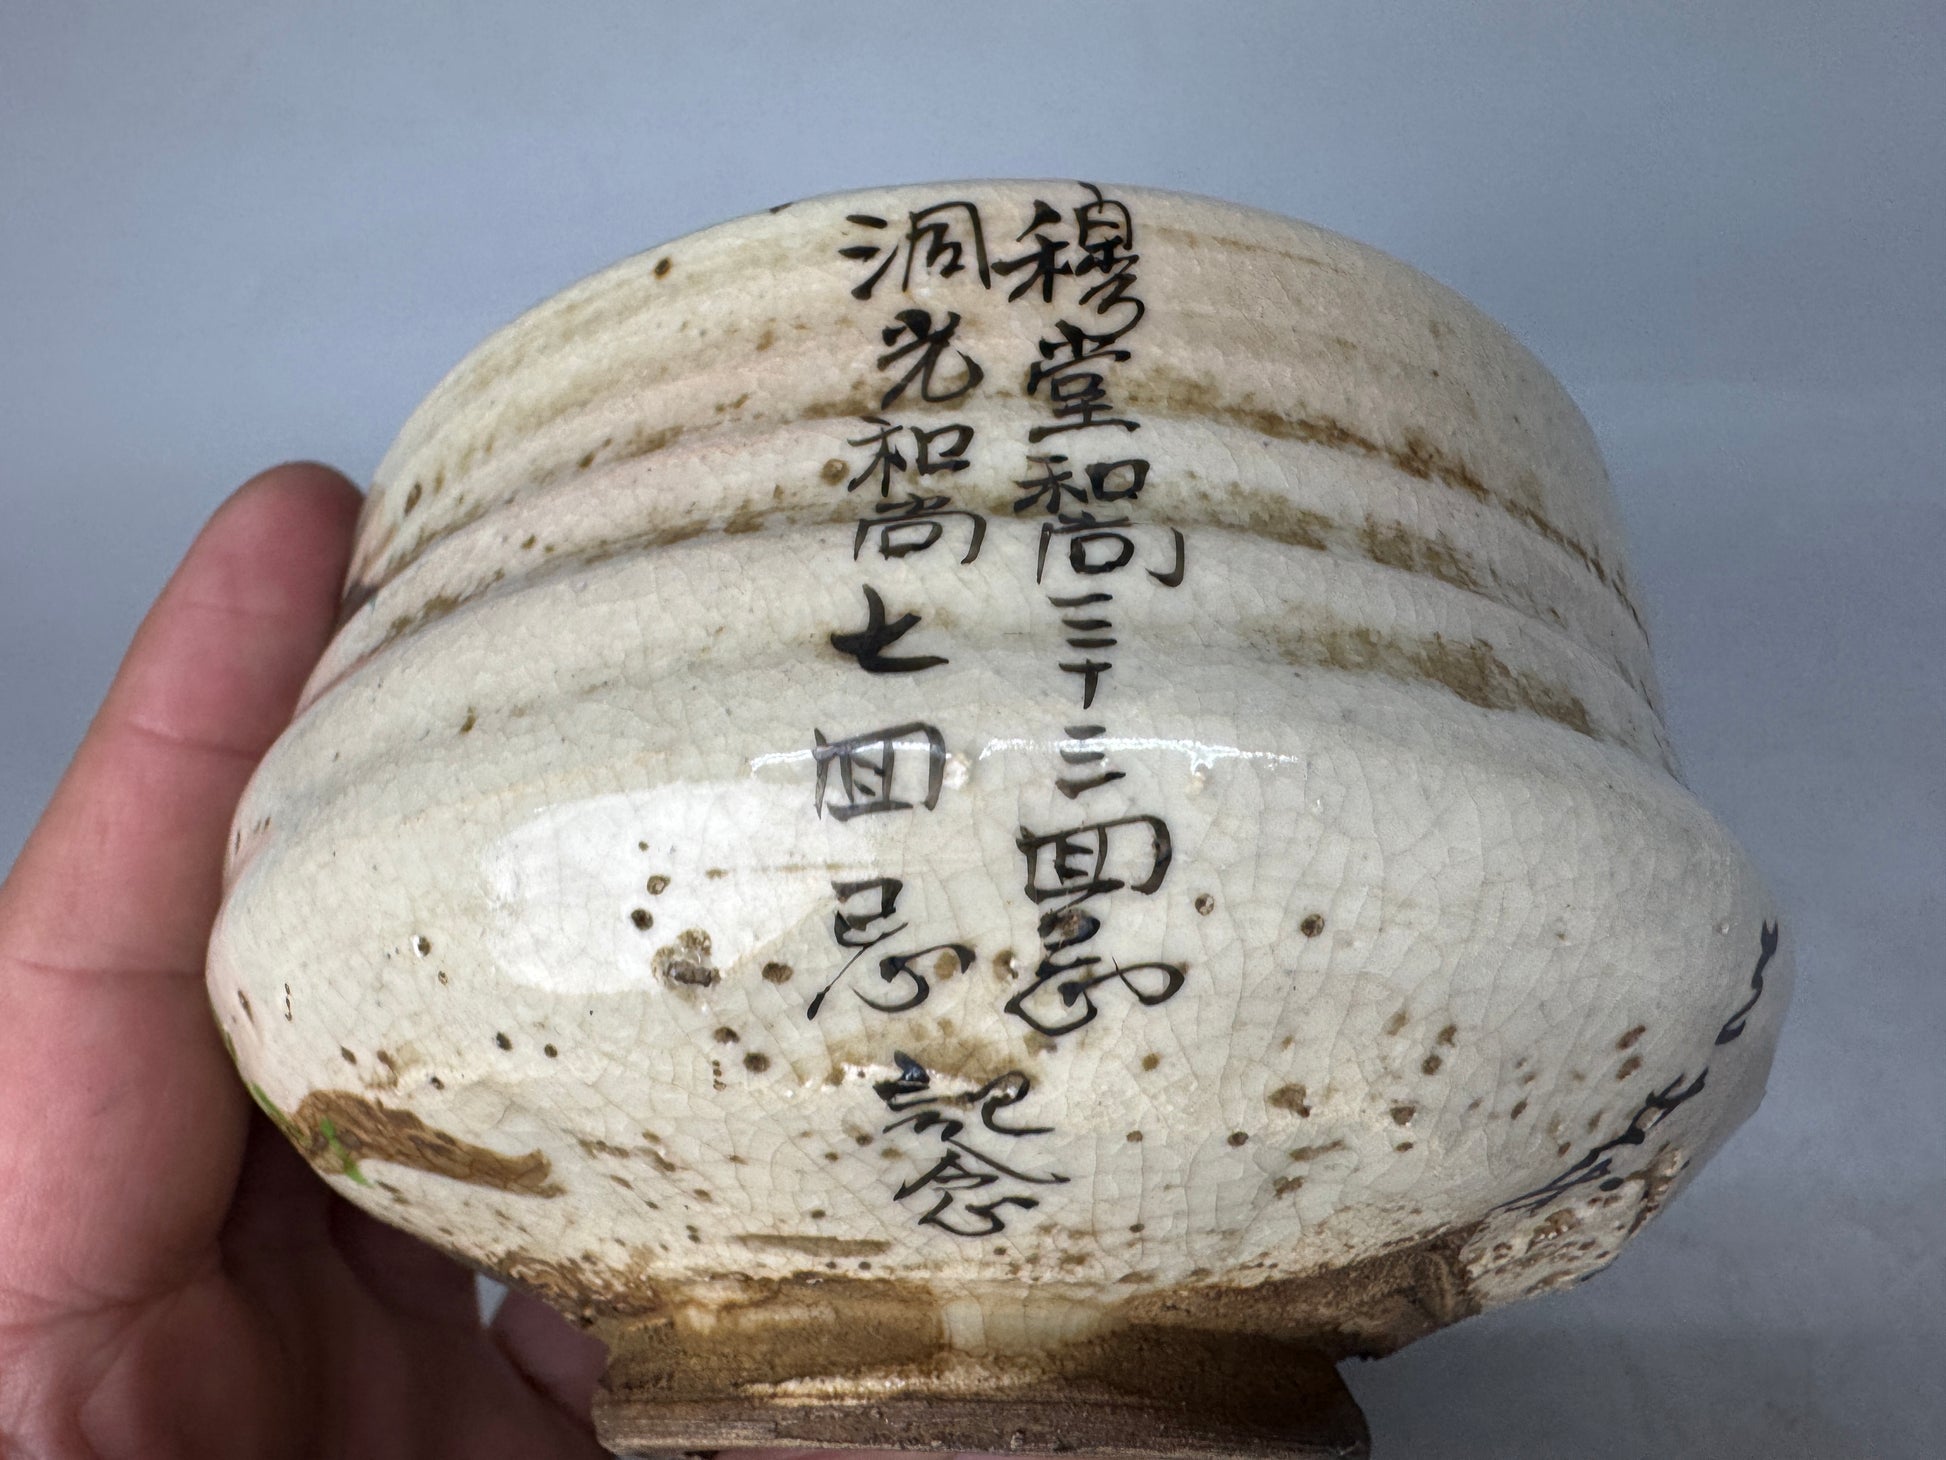 穆堂和尚三十三回忌
洞光和尚七回忌
記念